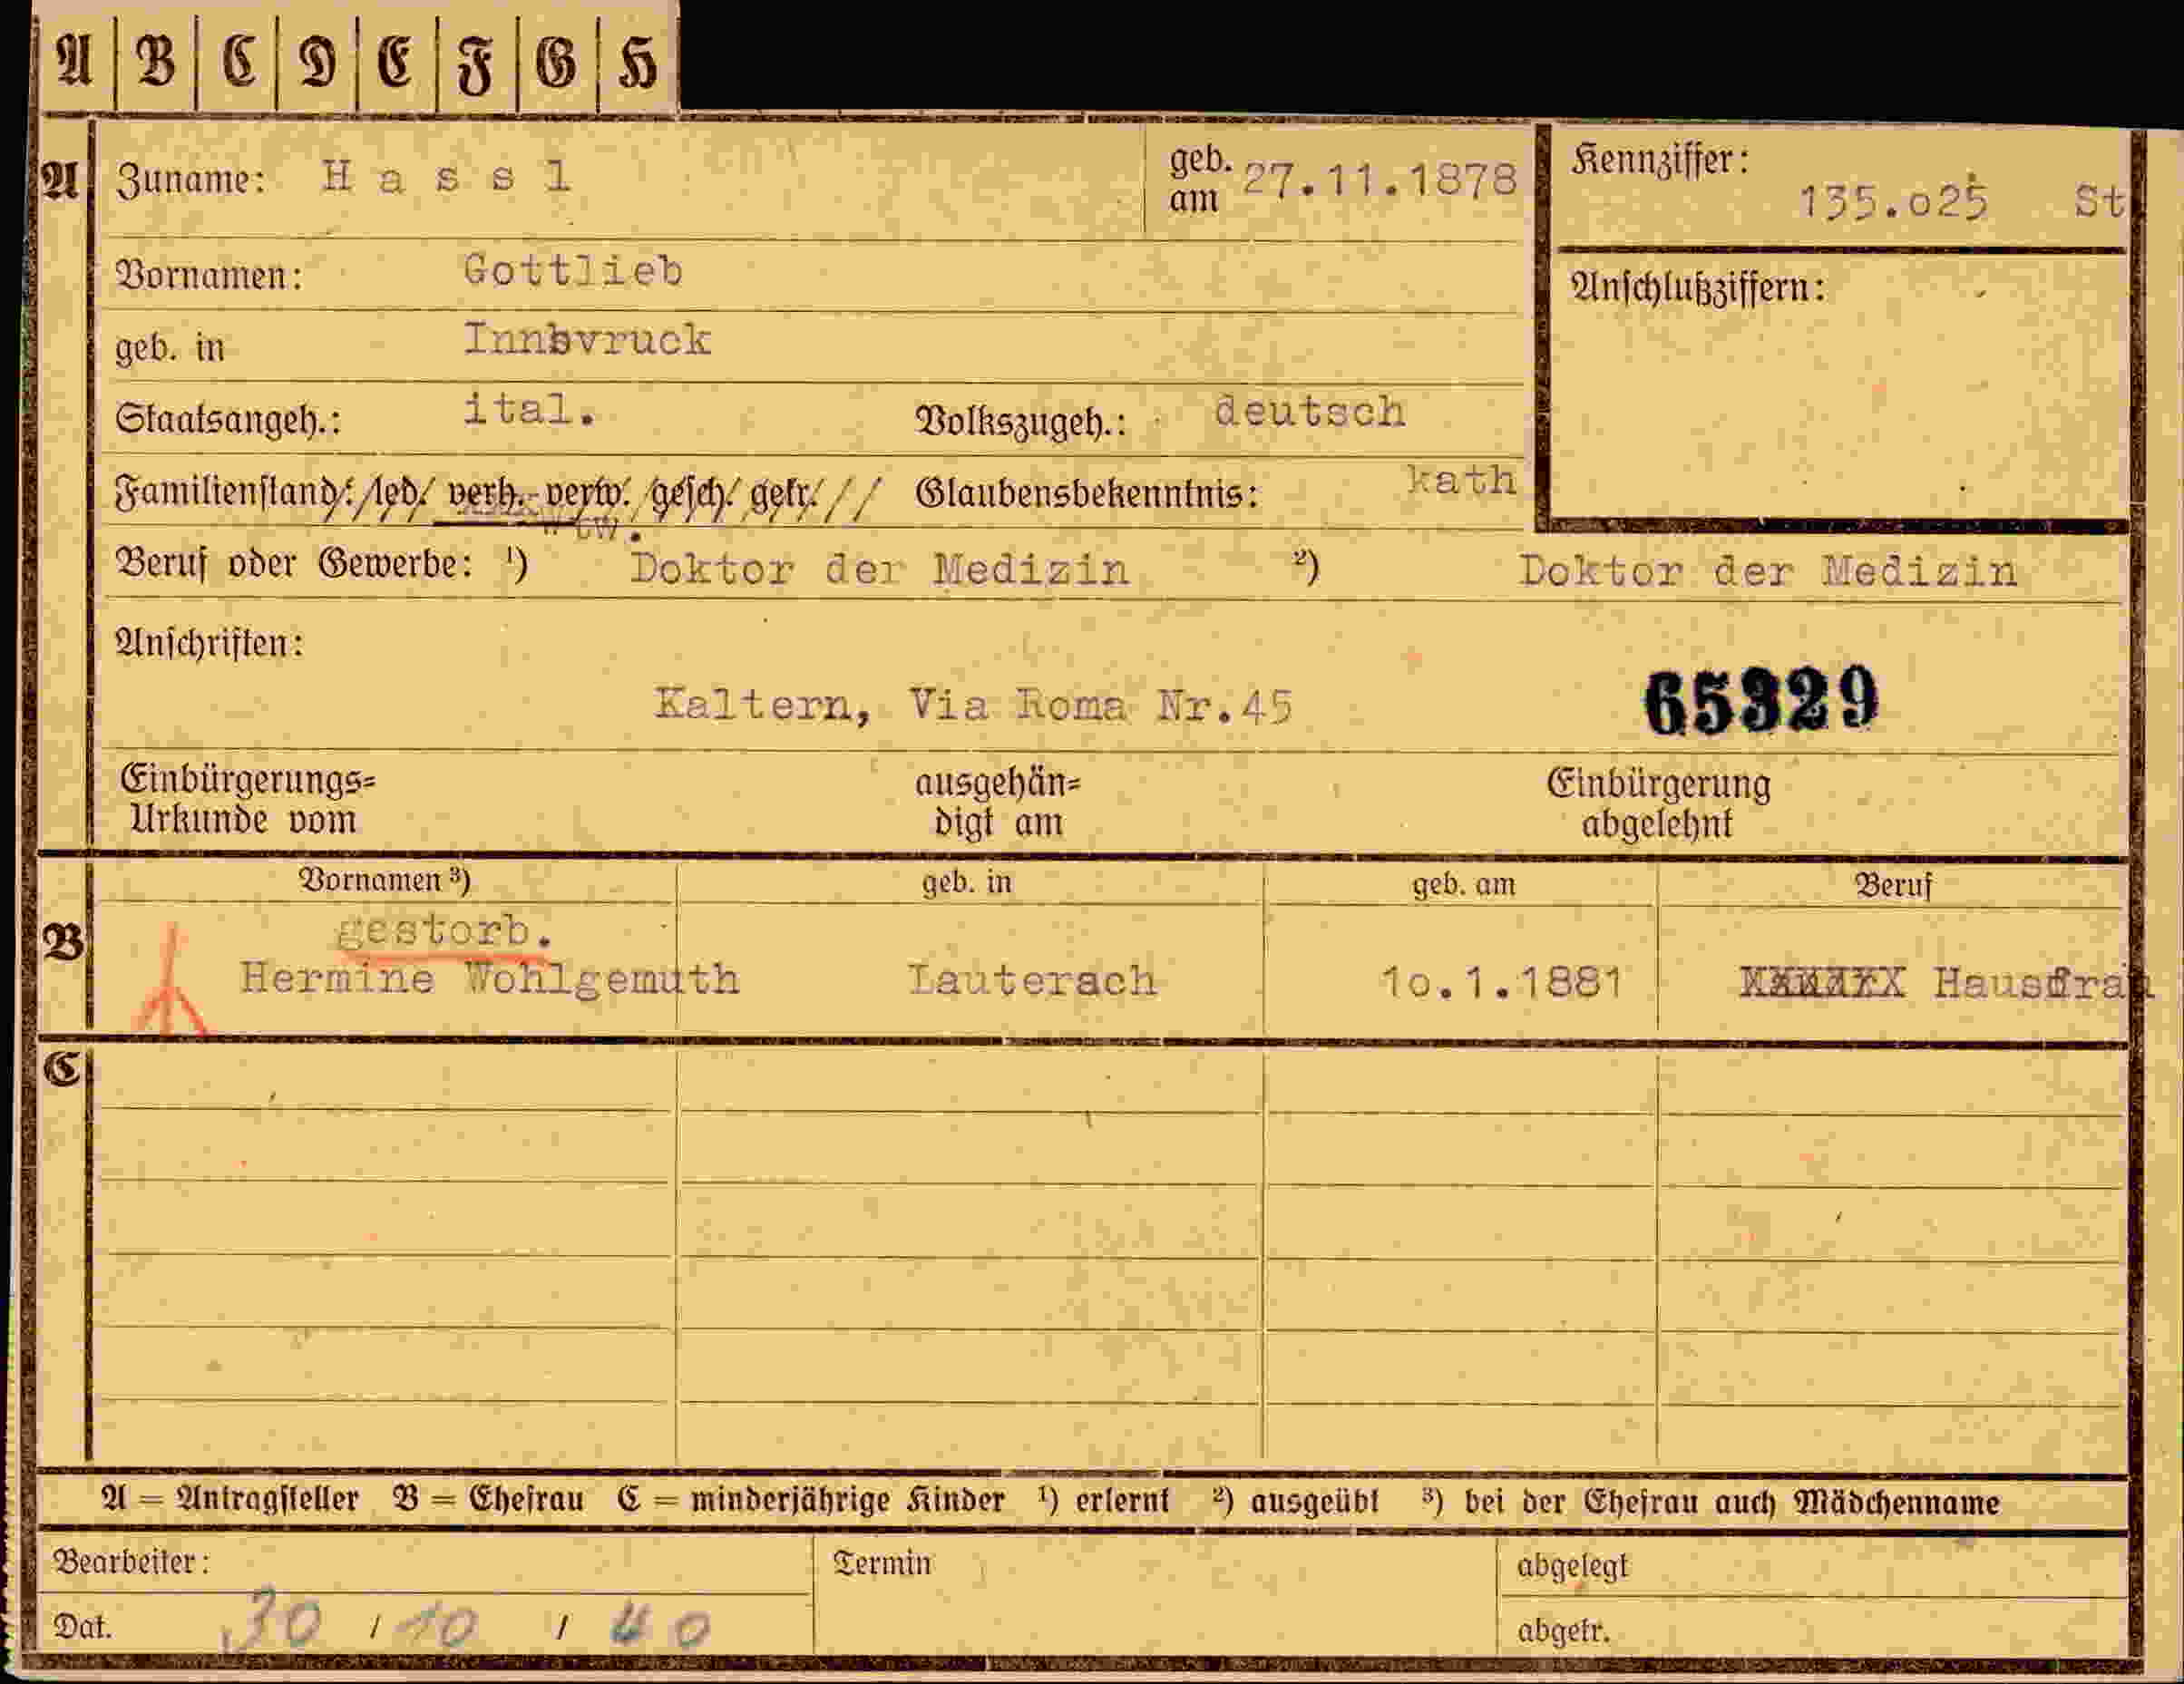 A B C D E F G H
A Zuname: H a s s l geb. am 27.11.1878 Kennziffer: 135.025 St
Vornamen: Gottlieb Anschlußziffern:
geb. in Innbvruck
Staatsangeh.: ital. Volkszugeh.: deutsch
Familienstand: led. verh. verw. gesch. getr. Glaubensbekenntnis: kath
wtw.
Beruf oder Gewerbe: ¹) Doktor der Medizin ²) Doktor der Medizin
Anschriften:
Kaltern, Via Roma Nr.45 65329
Einbürgerungs= ausgehän= Einbürgerung
Urkunde vom digt am abgelehnt
Vornamen ³) geb. in geb. am Beruf
B gestorb.
Hermine Wohlgemuth Lauterach 1o.1.1881 Hausfrau
C
A = Antragsteller B = Ehefrau C = minderjährige Kinder ¹) erlernt ²) ausgeübt ³) bei der Ehefrau auch Mädchenname
Bearbeiter: Termin abgelegt
Dat. 30 / 10 / 40 abgetr.